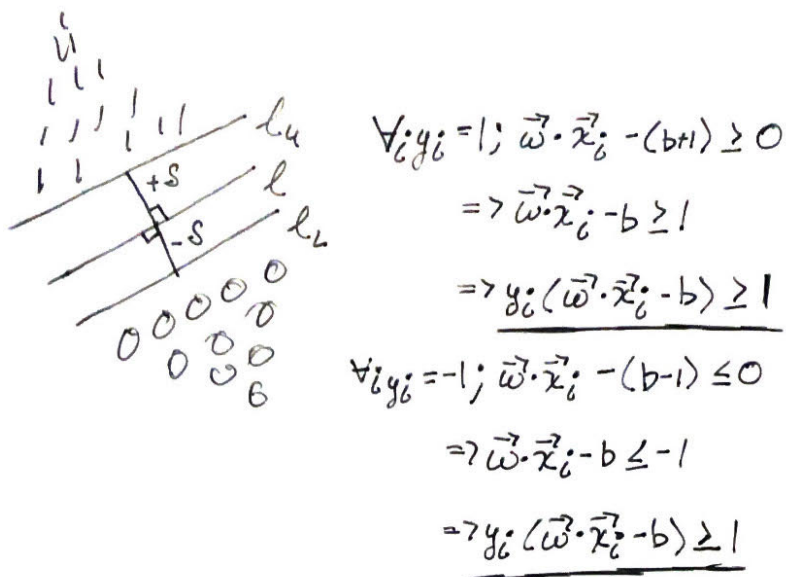 l_u
+S
l
-S
l_L
∀i yi = 1; ω⃗·x⃗i - (b+1) ≥ 0
=> ω⃗·x⃗i - b ≥ 1
=> yi(ω⃗·x⃗i - b) ≥ 1
∀i yi = -1; ω⃗·x⃗i - (b-1) ≤ 0
=> ω⃗·x⃗i - b ≤ -1
=> yi(ω⃗·x⃗i - b) ≥ 1